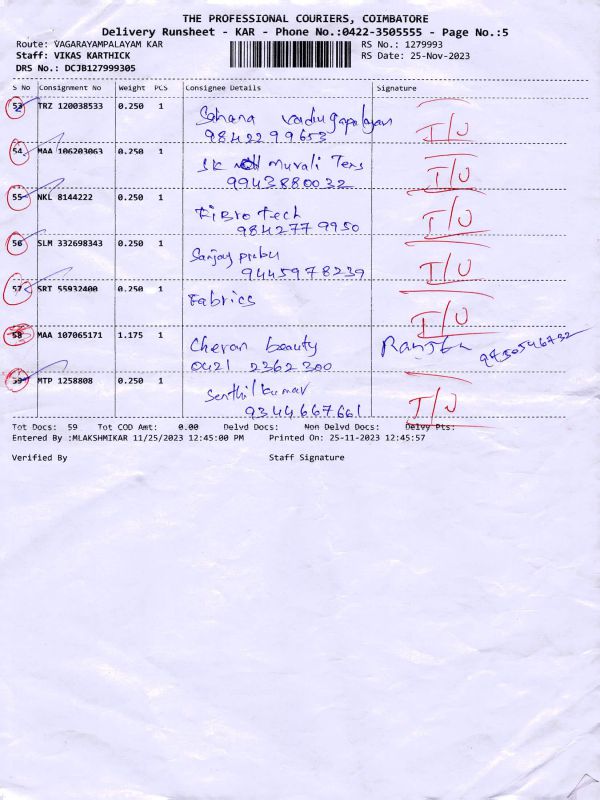 THE PROFESSIONAL COURIERS, COIMBATORE
Delivery Runsheet - KAR - Phone No.:0422-3505555 - Page No.:5
Route: VAGARAYAMPALAYAM KAR RS No.: 1279993
Staff: VIKAS KARTHICK RS Date: 25-Nov-2023
DRS No.: DCJB127999305
S No Consignment No Weight PCS Consignee Details Signature
53 TRZ 120038533 0.250 1 Sahana vadugapalayam I/U
9842299653
54 MAA 106203063 0.250 1 SK Murali Tex I/U
9943880032
55 NKL 8144222 0.250 1 Fibro Tech I/U
9842779950
56 SLM 332698343 0.250 1 Sanjay prabu I/U
9445978239
57 SRT 55932400 0.250 1 Fabrics I/U
58 MAA 107065171 1.175 1 Cheran beauty
0421 2362300
59 MTP 1258808 0.250 1 Senthilkumar I/U
9344667661
Tot Docs: 59 Tot COD Amt: 0.00 Delvd Docs: Non Delvd Docs: Delvy Pts:
Entered By :MLAKSHMIKAR 11/25/2023 12:45:00 PM Printed On: 25-11-2023 12:45:57
Verified By Staff Signature